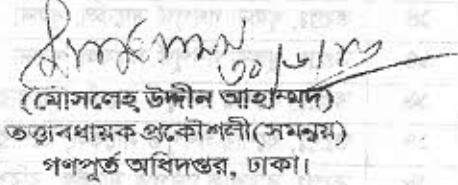 ৩০/৬/১৩
(মোসলেহ্ উদ্দীন আহাম্মদ)
তত্ত্বাবধায়ক প্রকৌশলী(সমন্বয়)
গণপূর্ত অধিদপ্তর, ঢাকা।